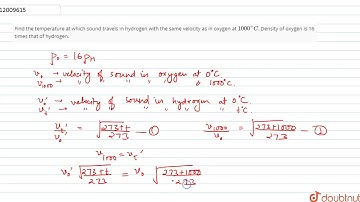 12009615
Find the temperature at which sound travels in hydrogen with the same velocity as in oxygen at 1000°C. Density of oxygen is 16 times that of hydrogen.
ρ₀ = 16 ρH
v₀ → velocity of sound in oxygen at 0°C.
v₁₀₀₀ → " " " " " 1000°C.
v₀' → velocity of sound in hydrogen at 0°C.
vt' → " " " " " t°C.
vt'/v₀' = √(273+t/273) — ①
v₁₀₀₀/v₀ = √(273+1000/273) — ②
v₁₀₀₀ = vt'
v₀' √(273+t/273) = v₀ √(273+1000/273)
doubtnut